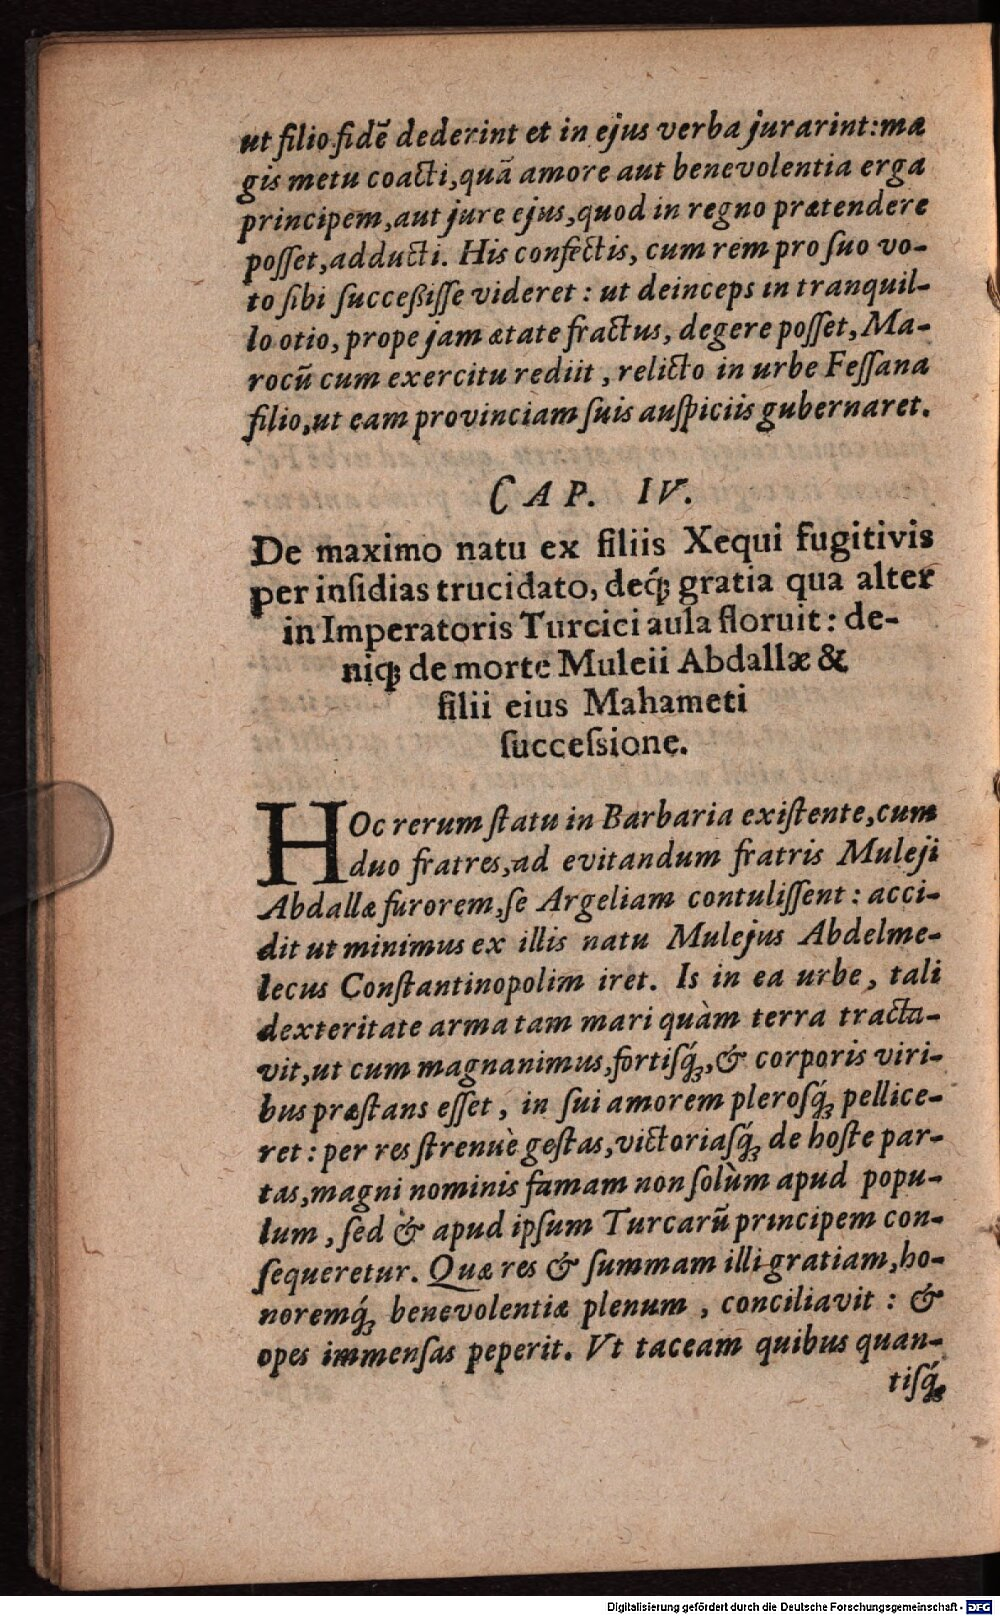 ut filio fidẽ dederint et in ejus verba jurarint: ma
gis metu coacti, quã amore aut benevolentia erga
principem, aut jure ejus, quod in regno prætendere
poſſet, adducti. His confectis, cum rem pro ſuo vo-
to ſibi ſucceßiſſe videret: ut deinceps in tranquil-
lo otio, prope jam ætate fractus, degere poſſet, Ma-
rocũ cum exercitu rediit, relicto in urbe Feſſana
filio, ut eam provinciam ſuis auſpiciis gubernaret.
CAP. IV.
De maximo natu ex filiis Xequi fugitivis
per inſidias trucidato, deq́; gratia qua alter
in Imperatoris Turcici aula floruit: de-
niq; de morte Muleii Abdallæ &
filii eius Mahameti
ſucceſsione.
HOc rerum ſtatu in Barbaria exiſtente, cum
duo fratres, ad evitandum fratris Muleji
Abdallæ furorem, ſe Argeliam contuliſſent: acci-
dit ut minimus ex illis natu Mulejus Abdelme-
lecus Conſtantinopolim iret. Is in ea urbe, tali
dexteritate arma tam mari quàm terra tracta-
vit, ut cum magnanimus, fortiſq́;, & corporis viri-
bus præſtans eſſet, in ſui amorem pleroſq́; pellice-
ret: per res ſtrenuè geſtas, victoriaſq́; de hoſte par-
tas, magni nominis famam non ſolùm apud popu-
lum, ſed & apud ipſum Turcarũ principem con-
ſequeretur. Quæ res & ſummam illi gratiam, ho-
noremq́; benevolentiæ plenum, conciliavit: &
opes immenſas peperit. Vt taceam quibus quan-
tiſq́;
Digitalisierung gefördert durch die Deutsche Forschungsgemeinschaft - DFG